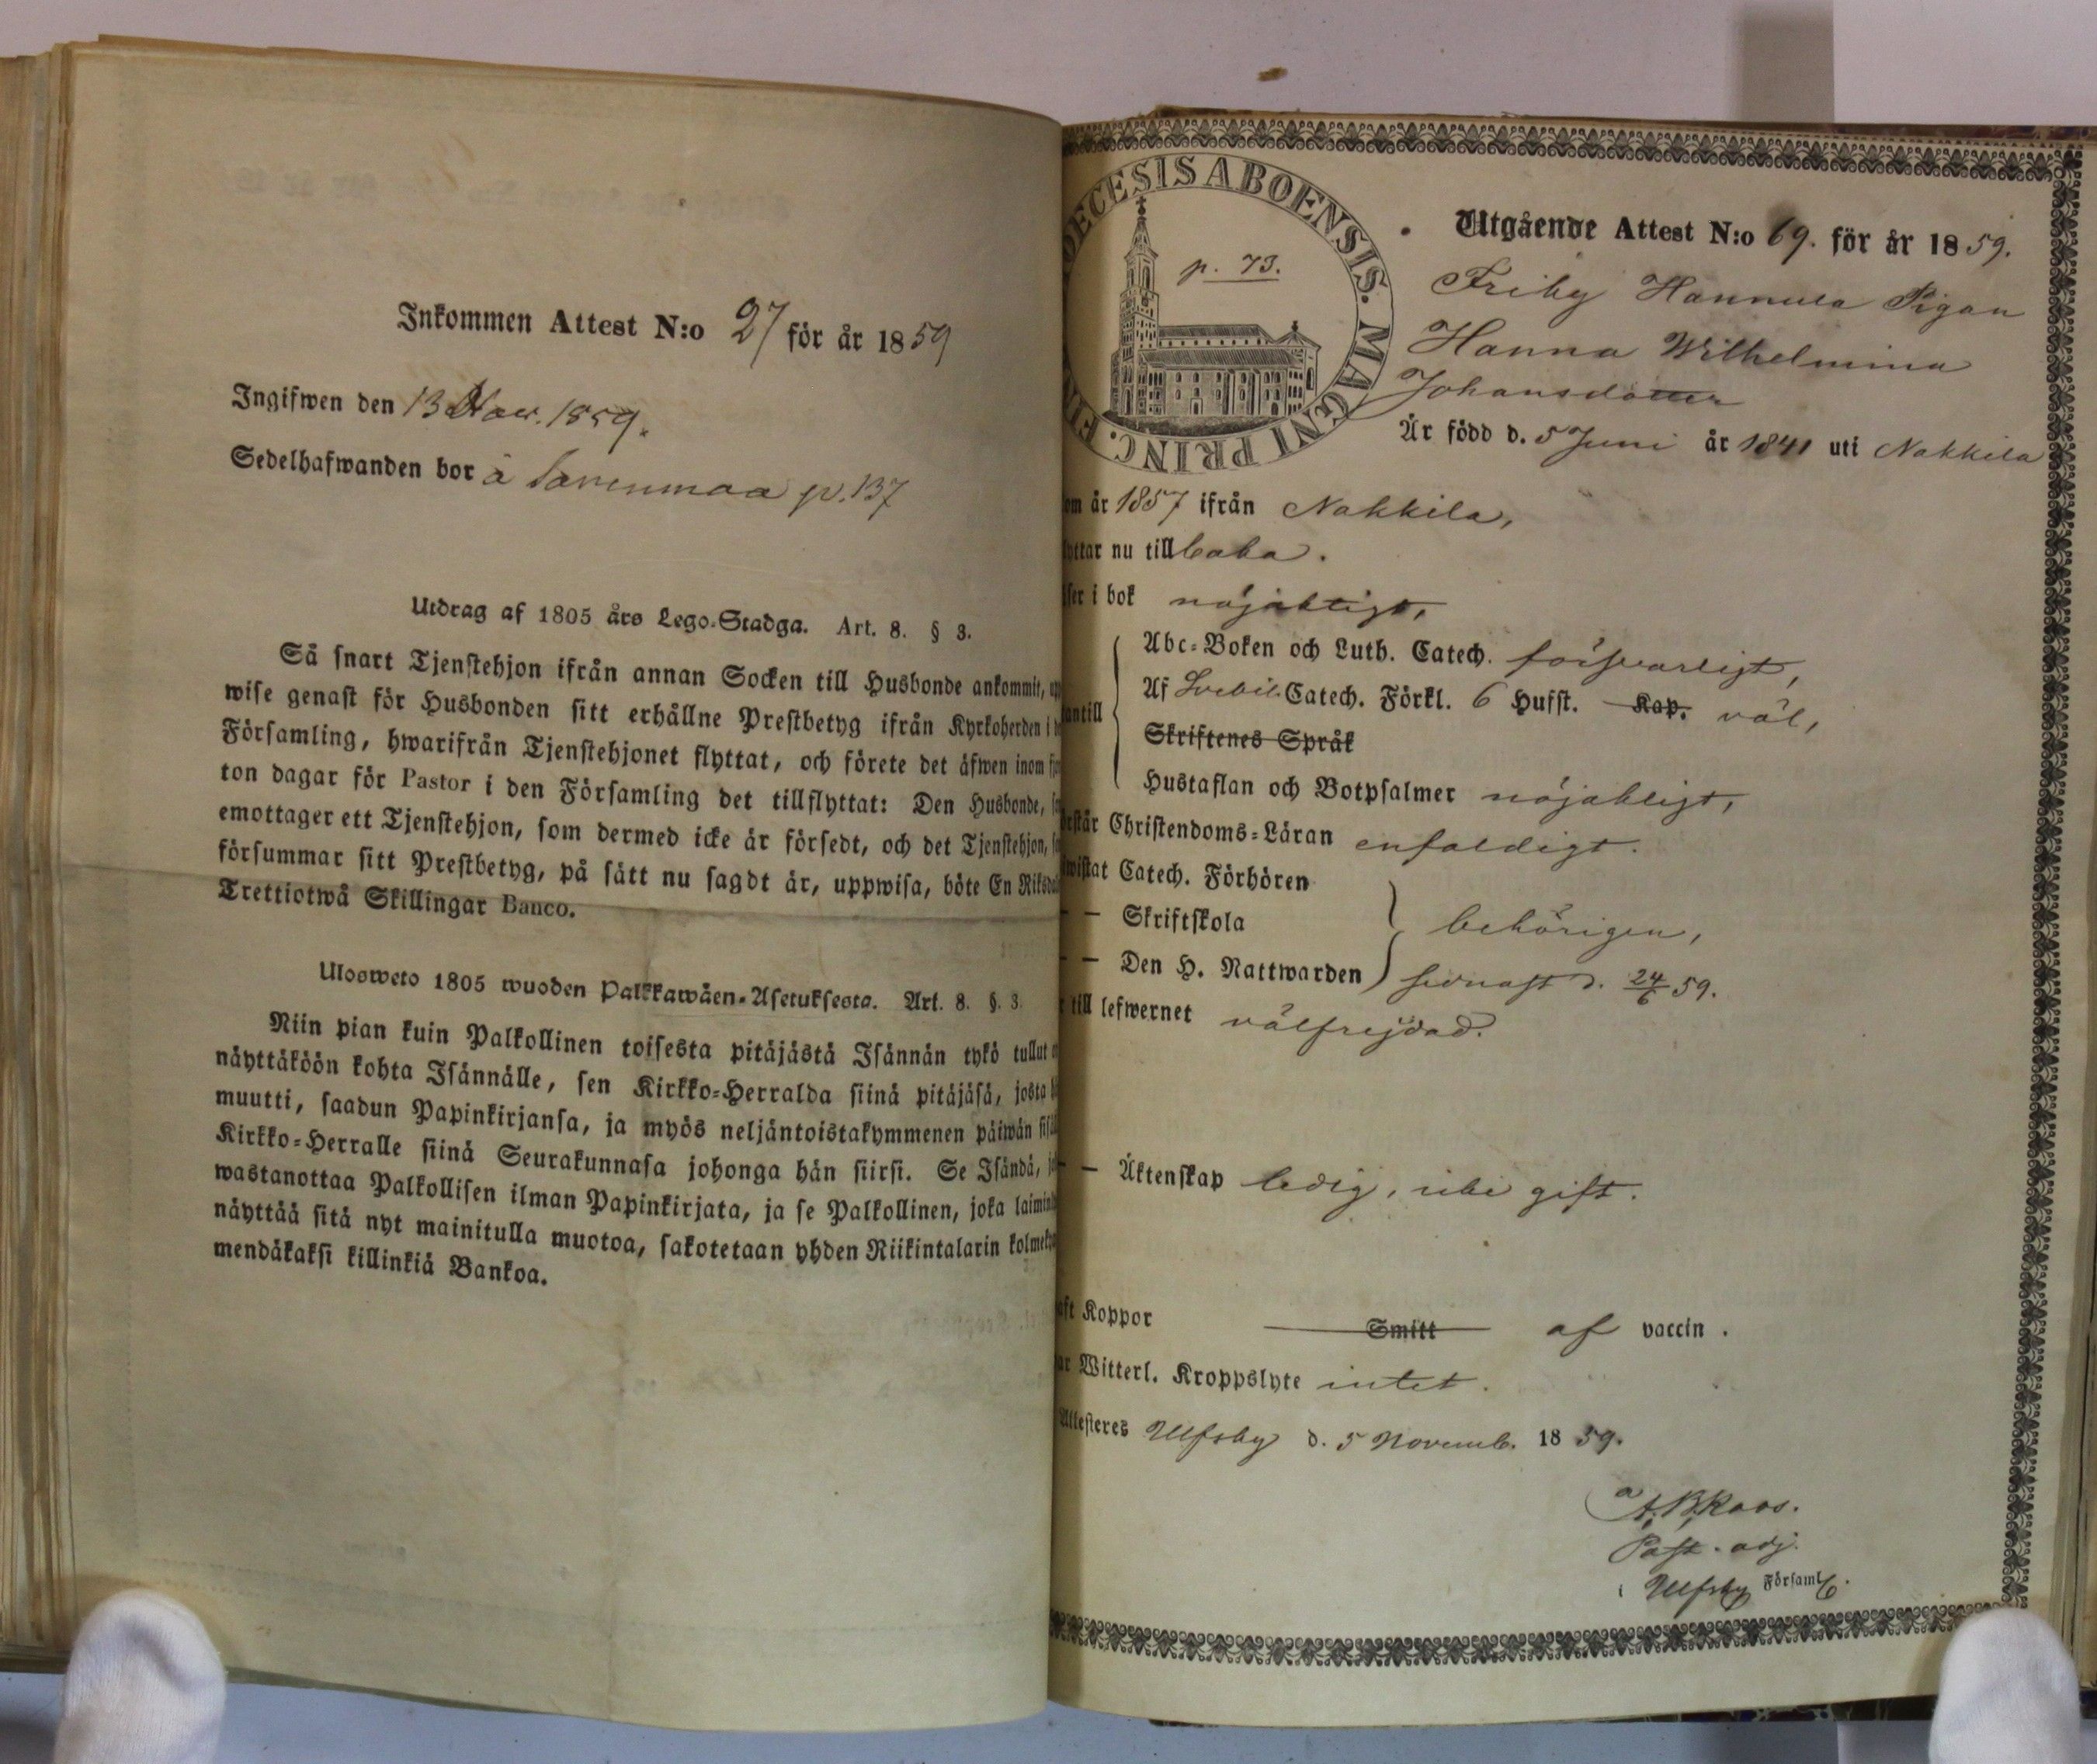 Inkommen Attest N:o 27 för år 1859
Ingifwen den 13 Nov. 1859.
Sedelhafwanden bor å Savenmaa p. 137
Utdrag af 1805 års Lego-Stadga. Art. 8. § 3.
Så snart Tjenstehjon ifrån annan Socken till Husbonde ankommit, upp
wise genast för Husbonden sitt erhållne Prestbetyg ifrån Kyrkoherden i
Församling, hwarifrån Tjenstehjonet flyttat, och förete det äfwen inom
ton dagar för Pastor i den Församling det tillflyttat: Den Husbonde,
emottager ett Tjenstehjon, som dermed icke är försedt, och det Tjenstehjon,
försummar sitt Prestbetyg, på sätt nu sagdt är, uppwisa, böte En Riksda
Trettiotwå Skillingar Banco.
Ulosweto 1805 wuoden Palkkawäen-Asetuksesta. Art. 8. §. 3.
Niin pian kuin Palkollinen toisesta pitäjästä Isännän tykö tullut
näyttäköön kohta Isännälle, sen Kirkko-Herralda siinä pitäjäsä, josta
muutti, saadun Papinkirjansa, ja myös neljäntoistakymmenen päiwän sisä
Kirkko-Herralle siinä Seurakunnasa johonga hän siirsi. Se Isändä,
wastanottaa Palkollisen ilman Papinkirjata, ja se Palkollinen, joka laimin
näyttää sitä nyt mainitulla muotoa, sakotetaan yhden Riikintalarin kolmeky
mendäkaksi killinkiä Bankoa.
DECESIS ABOENSIS. MAGNI PRINC. FIN
p. 73.
Utgående Attest N:o 69. för år 1859.
Friby Hannula Pigan
Hanna Wilhelmina
Johansdotter
Är född d. 5 Juni år 1841 uti Nakkila
om år 1857 ifrån Nakkila,
yttar nu tillbaka.
ser i bok nöjaktigt,
antill
Abc-Boken och Luth. Catech. försvarligt,
Af Svebil. Catech. Förkl. 6 Hufst. Kap. väl,
Skriftenes Språk
Hustaflan och Botpsalmer nöjaktigt,
rstår Christendoms-Läran enfaldigt.
wistat Catech. Förhören
— Skriftskola
behörigen,
— Den H. Nattwarden
sednast d. 24/6 59.
till lefwernet välfrejdad.
— Äktenskap ledig, icke gift.
aft Koppor Smitt af vaccin.
ar Witterl. Kroppslyte intet.
Attesteres Ulfsby d. 5 Novemb. 1859.
A. B. Roos.
Past. adj.
i Ulfsby Förssaml.